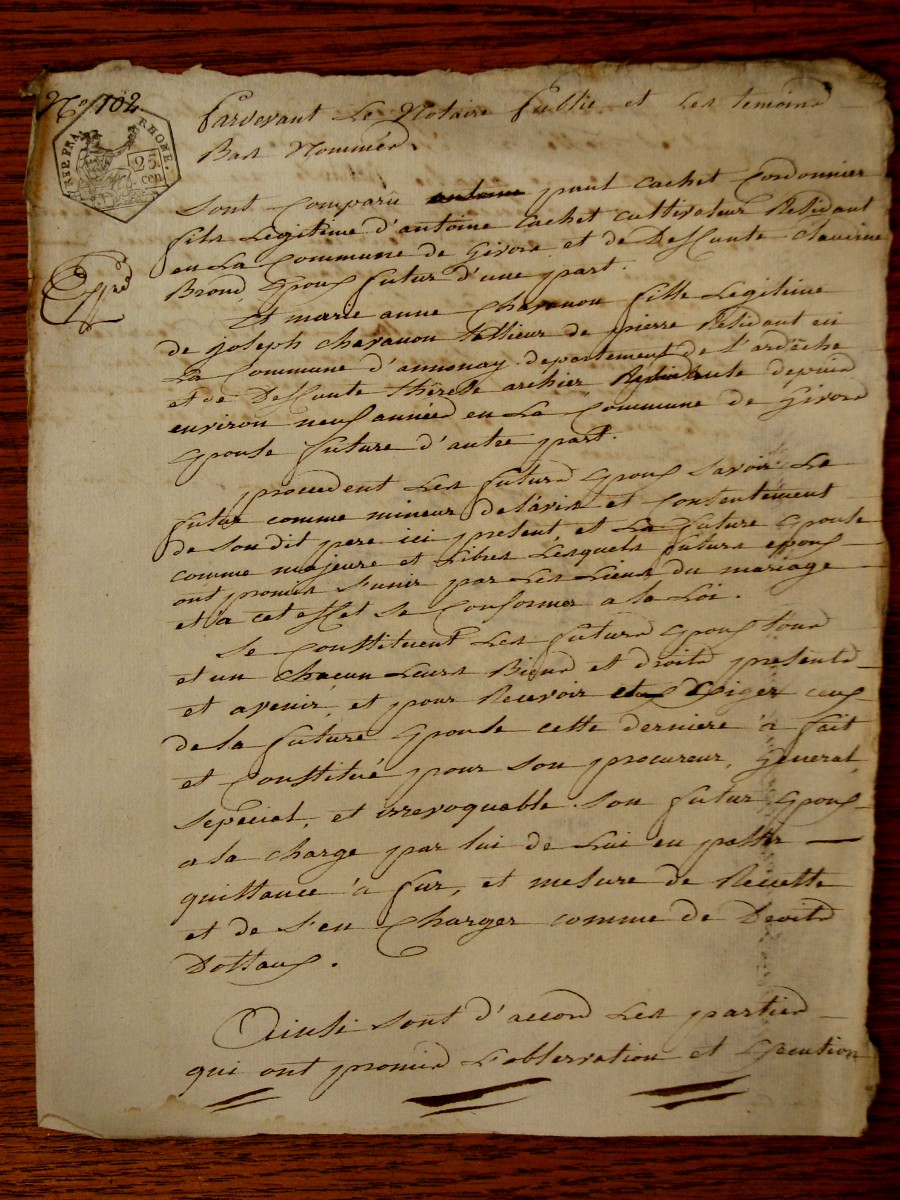 No 102.
REP. FRA. RHONE.
25
cen
Expéd
Pardevant Le Notaire Public et Les temoins
Bas Nommés.
Sont Comparu antoine paul cachet Cordonnier
fils Legitime d'antoine Cachet cultivateur Residant
en La Commune de Givors et de Deffunte claverine
Brond, Epoux futur d'une part.
Et marie anne Chavanon fille Legitime
de joseph chavanon tallieur de pierre Residant en
La Commune d'annonay departement de l'ardêche
et de Deffunte thérese archier Residante depuis
environ neuf années en La Commune de Givors
Epouse future d'autre part.
procedent Les futurs Epoux savoir Le
futur comme mineur de l'avis et Consentement
de son dit pere ici present, et La future Epouse
comme majeure et Libre Lesquels futurs epoux
ont promis s'unir par Les Liens du mariage
et à cet effet se Conformer a la Loi.
Se Constituent Les futurs Epoux tous
et un Chacun Leurs Biens et droits presents
et avenir, et pour Recevoir et Exiger ceux
de la future Epouse cette derniere à fait
et Constitué pour son procureur, General,
sepécial, et irrevoquable son futur Epoux
a la charge par lui de Lui en passer
quittance à fur, et mesure de Recette
et de s'en Charger comme de Droits
Dottaux.
Ainsi sont d'accord Les parties
qui ont promis L'observation et Execution